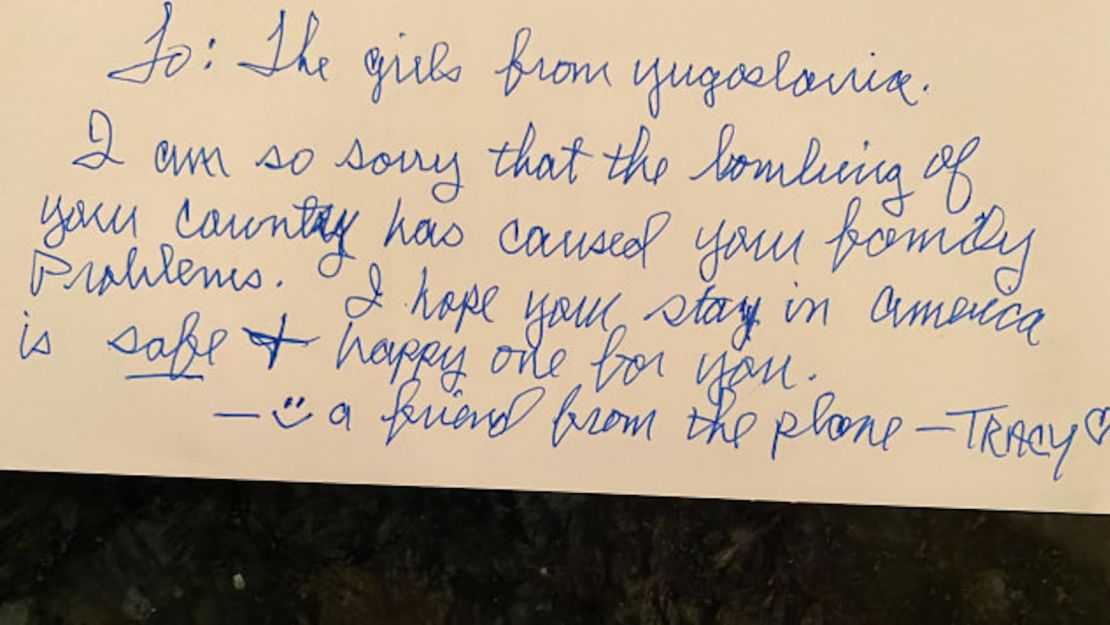 To: The girls from yugoslavia.
I am so sorry that the bombing of
your country has caused your family
Problems. I hope your stay in America
is safe + happy one for you.
— :) a friend from the plane — TRACY ♡